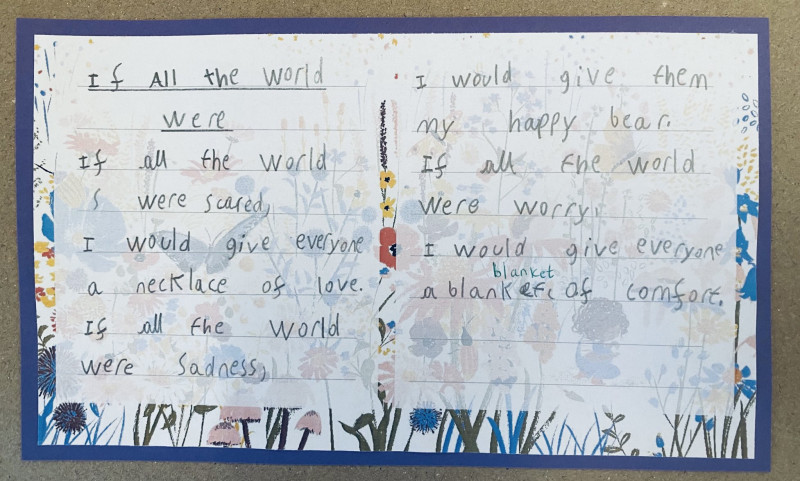 If All the world
were
If all the world
were scared,
I would give everyone
a necklace of love.
If all the world
were sadness,
I would give them
my happy bear.
If all the world
were worry,
I would give everyone
blanket
a blank of comfort.